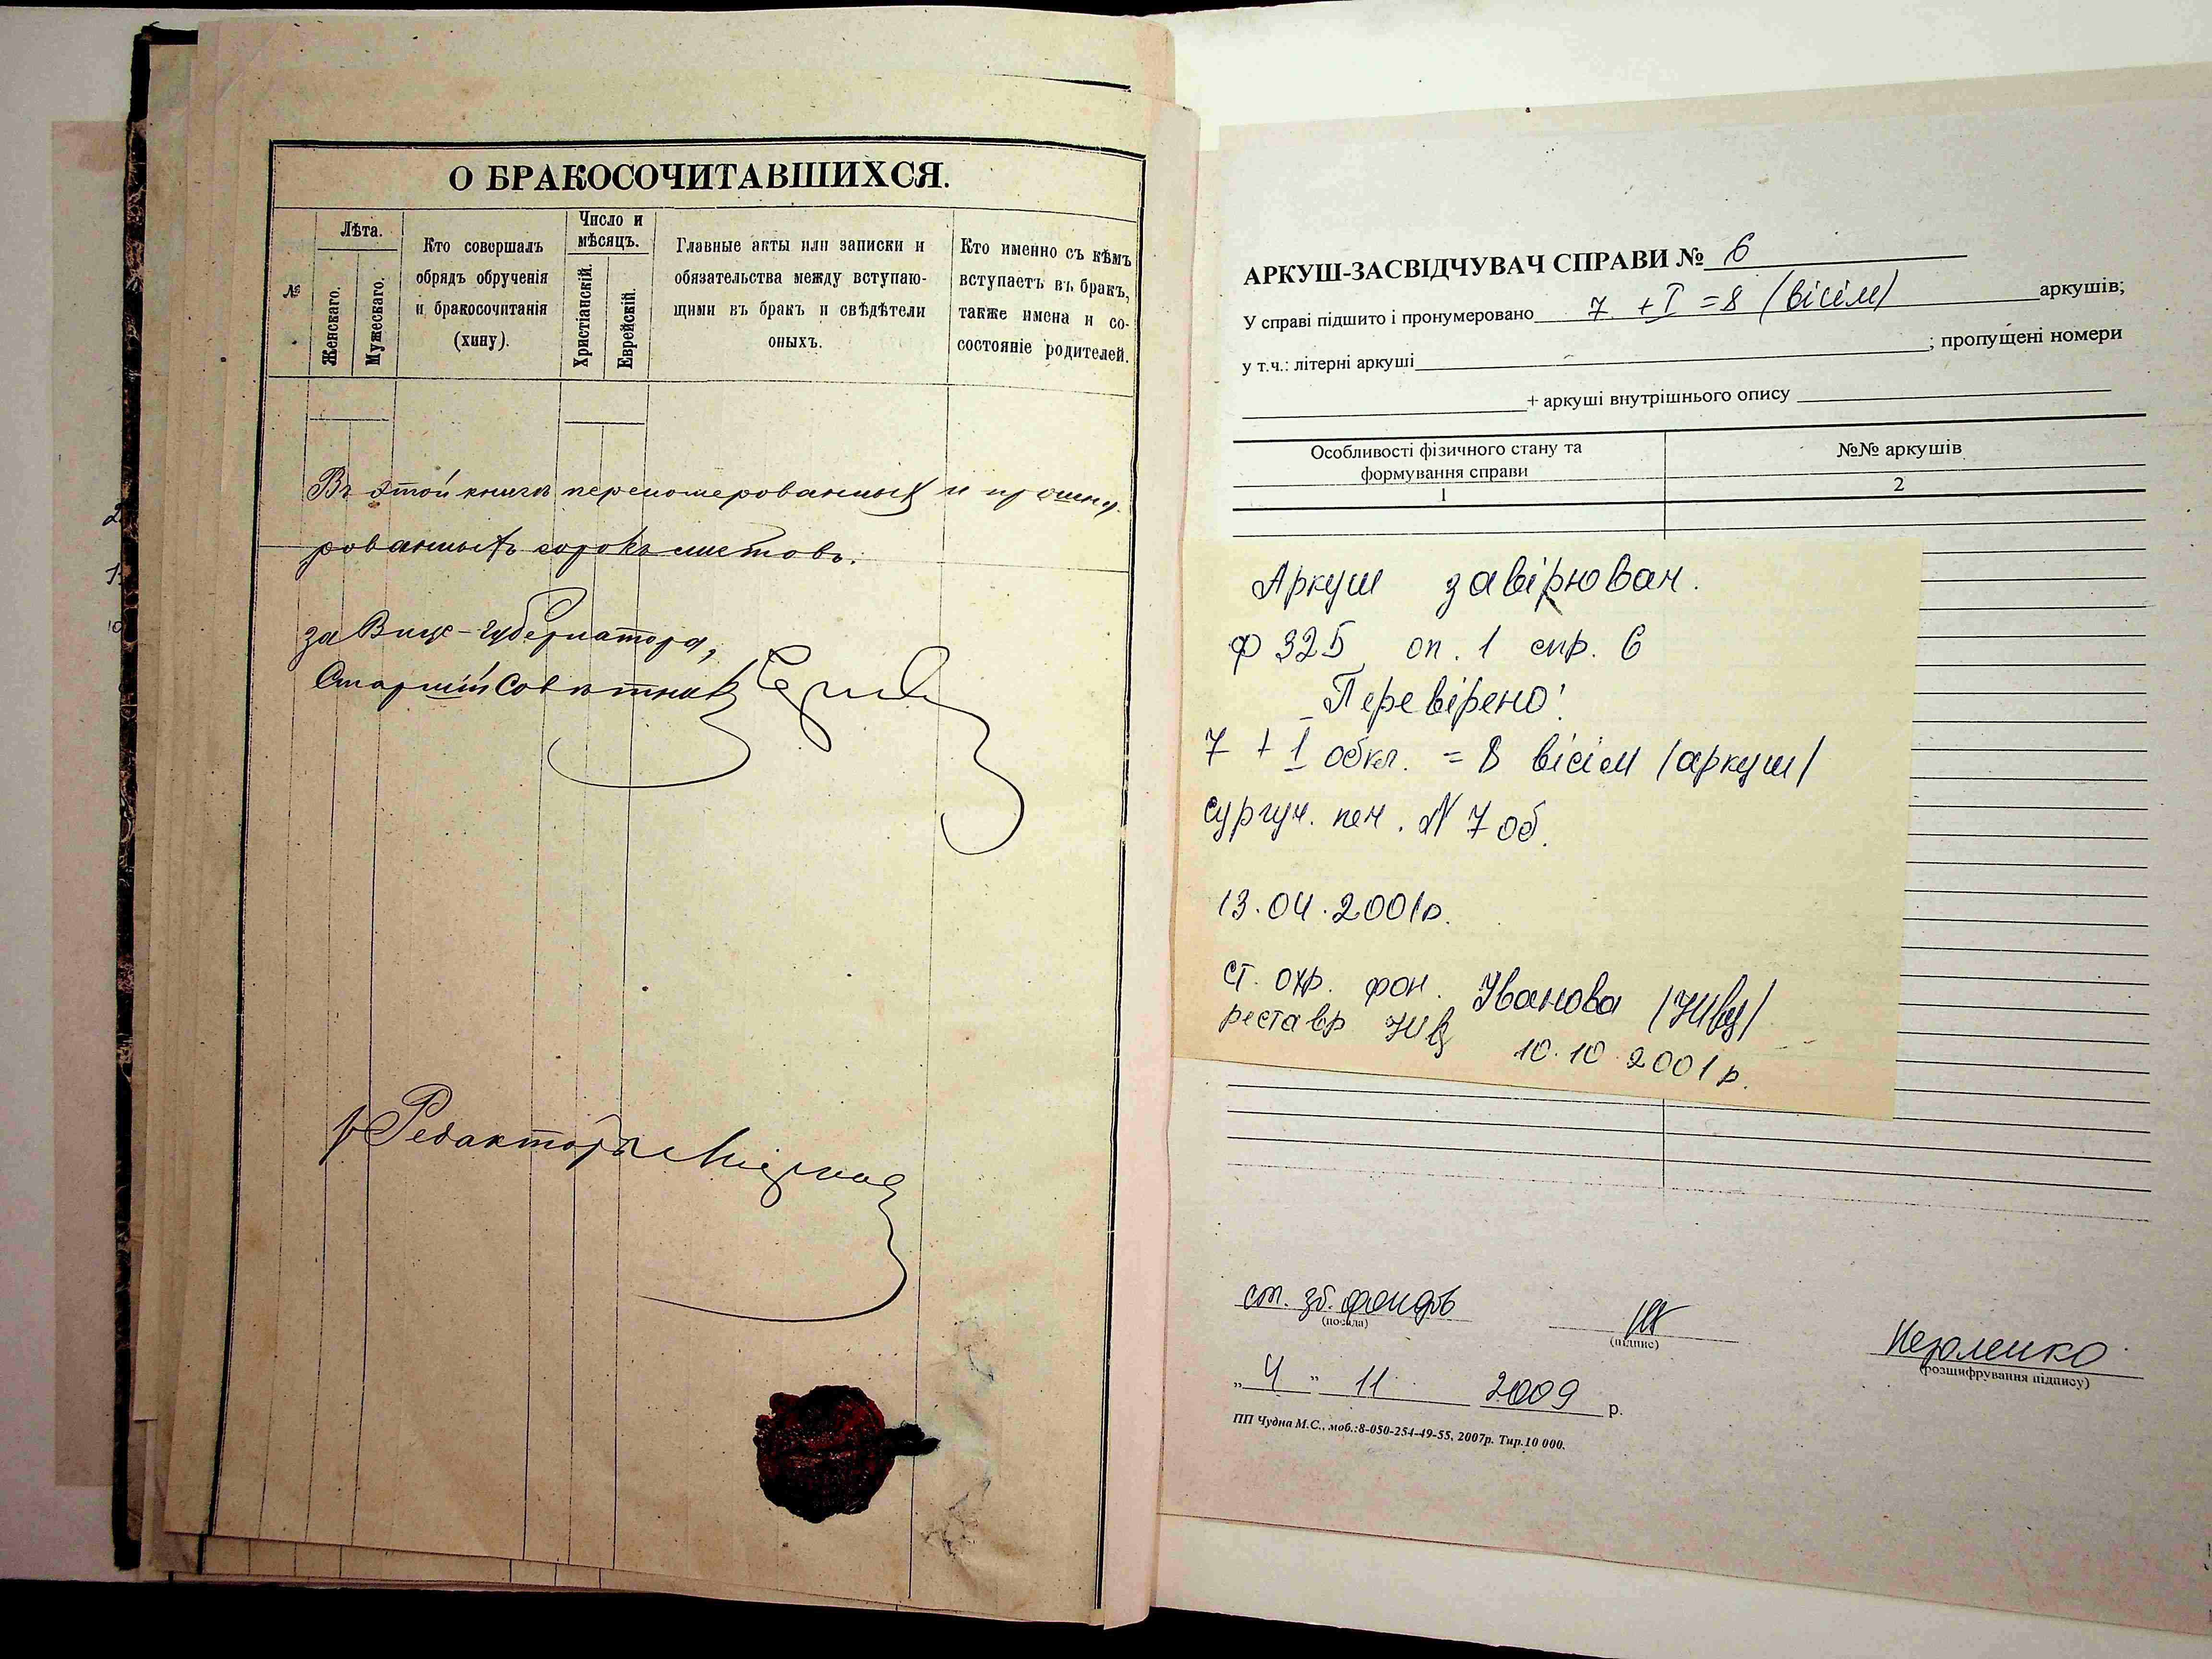 О БРАКОСОЧИТАВШИХСЯ.
№
Лѣта.
Женскаго.
Мужескаго.
Кто совершалъ
обрядъ обрученія
и бракосочитанія
(хину).
Число и
мѣсяцъ.
Христіанскій.
Еврейскій.
Главные акты или записки и
обязательства между вступаю-
щими въ бракъ и свѣдѣтели
оныхъ.
Кто именно съ кѣмъ
вступаетъ въ бракъ,
также имена и со-
состояніе родителей.
Въ этой книгѣ перенумерованныхъ и прошну-
рованныхъ сорокъ листовъ.
за Вице-Губернатора,
Старшій Совѣтникъ
Редакторъ
АРКУШ-ЗАСВІДЧУВАЧ СПРАВИ № 6
У справі підшито і пронумеровано 7 + I = 8 (вісім) аркушів;
у т.ч.: літерні аркуші ; пропущені номери
+ аркуші внутрішнього опису
Особливості фізичного стану та
формування справи
№№ аркушів
1
2
Аркуш завірювач.
ф 325 оп. 1 спр. 6
Перевірено:
7 + 1 обкл. = 8 вісім /аркуш/
сургуч. печ. N 7 об.
13.04.2001р.
ст. охр. фон. Іванова
реставр
10.10.2001р.
ст. зб. фондів
(посада)
(підпис)
(розшифрування підпису)
„ 4 " 11 2009 р.
ПП Чудна М.С., моб.:8-050-254-49-55, 2007р. Тир.10 000.